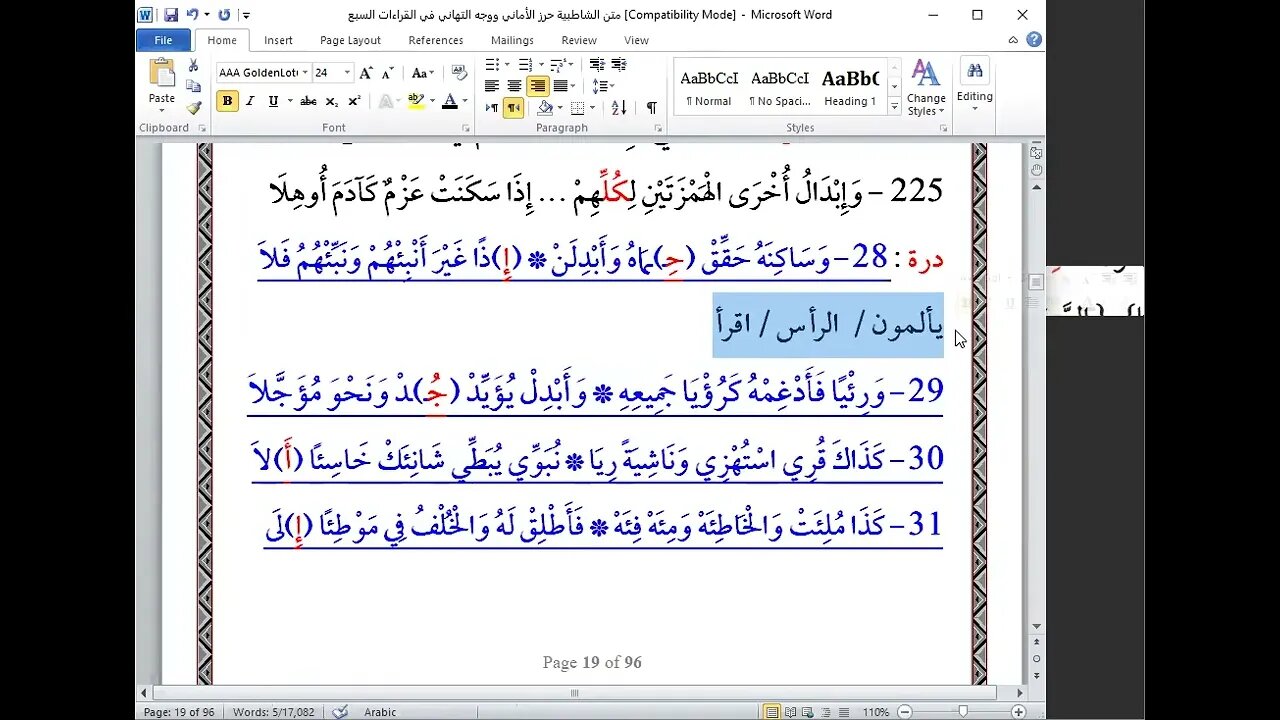 متن الشاطبية حرز الأماني ووجه التهاني في القراءات السبع [Compatibility Mode] - Microsoft Word
File Home Insert Page Layout References Mailings Review View
Paste
AAA GoldenLot 24
AaBbCcI AaBbCcI AaBbC
¶ Normal ¶ No Spaci... Heading 1
Change Styles
Editing
Clipboard Font Paragraph Styles
225 - وَإِبْدَالُ أُخْرَى الْهَمْزَتَيْنِ لِكُلِّهِمْ ... إِذَا سَكَنَتْ عَزْمٌ كَآدَمَ أُوهِلَا
درة : 28- وَسَاكِنَهُ حَقِّقْ (حِـ)مَاهُ وَأَبْدِلَنْ * (إِ)ذًا غَيْرَ أَنْبِئْهُمْ وَنَبِّئْهُمُ فَلاَ
يألمون / الرأس / اقرأ
29- وَرِئْيًا فَأَدْغِمْهُ كَرُؤْيَا جَمِيعِهِ * وَأَبْدِلْ يُؤَيِّدْ (جُـ)دْ وَنَحْوَ مُؤَجَّلاَ
30- كَذَاكَ قُرِي اسْتُهْزِي وَنَاشِيَةً رِيَا * نُبَوِّي يُبَطِّي شَانِئَكْ خَاسِئًا (أَ)لاَ
31- كَذَا مُلِئَتْ وَالْخَاطِئَهْ وَمِئَهْ فِئَهْ * فَأَطْلِقْ لَهُ وَالْخُلْفُ فِي مَوْطِئًا (إِ)لَى
Page 19 of 96
Page: 19 of 96 Words: 5/17,082 Arabic 110%